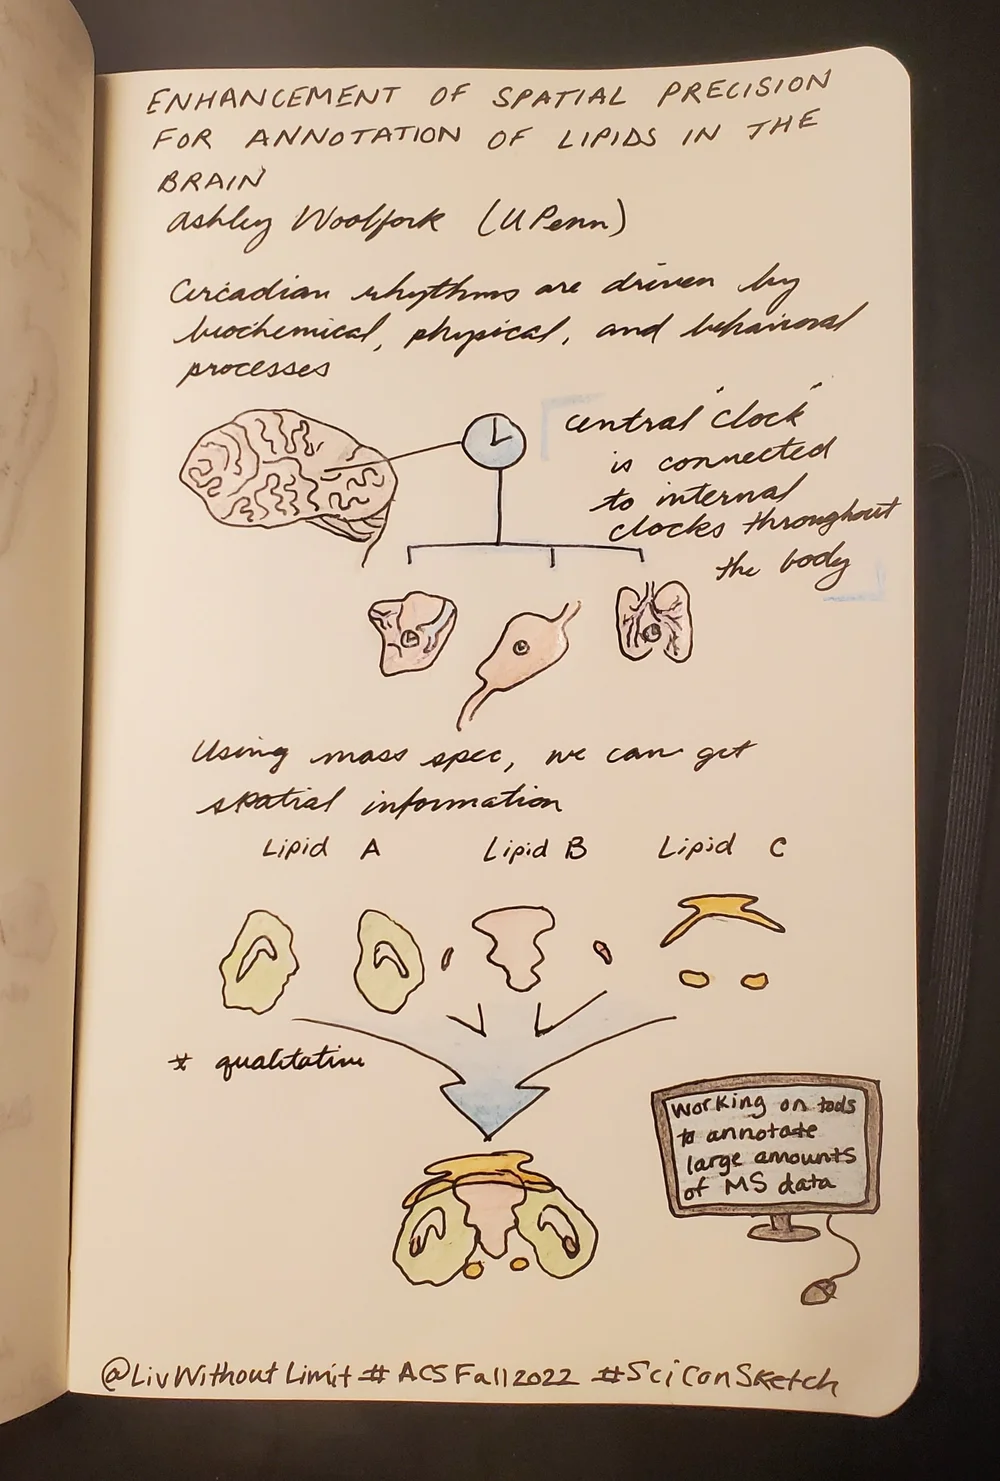 ENHANCEMENT OF SPATIAL PRECISION
FOR ANNOTATION OF LIPIDS IN THE
BRAIN
Ashley Woolfork (UPenn)
Circadian rhythms are driven by
biochemical, physical, and behavioral
processes
central "clock"
is connected
to internal
clocks throughout
the body
Using mass spec, we can get
spatial information
Lipid A Lipid B Lipid C
* qualitative
Working on tools
to annotate
large amounts
of MS data
@LivWithoutLimit #ACSFall2022 #SciConSketch